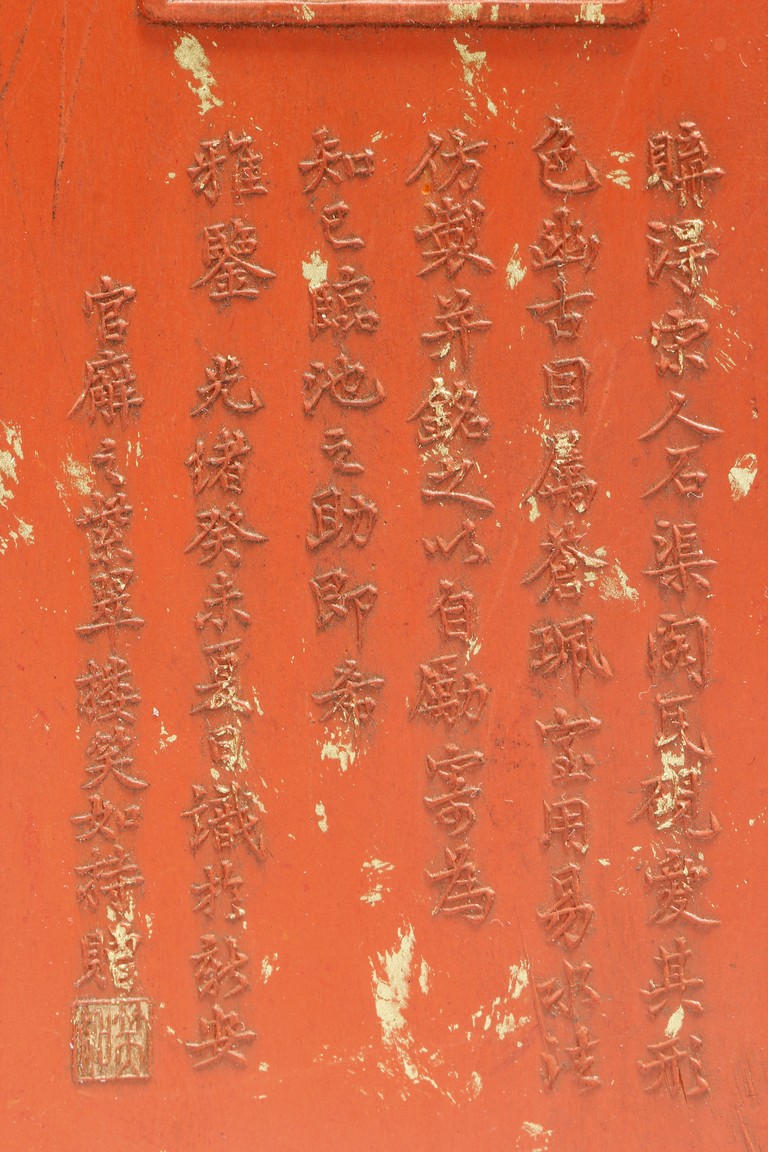 購得宋人石渠閣瓦硯愛其形
色幽古因屬蒼珮室用易水法
仿製并銘之以自勵寄為
知己臨池之助即希
雅鑒 光緒癸未夏日識於新安
官廨之紫翠樓笑如詩贈